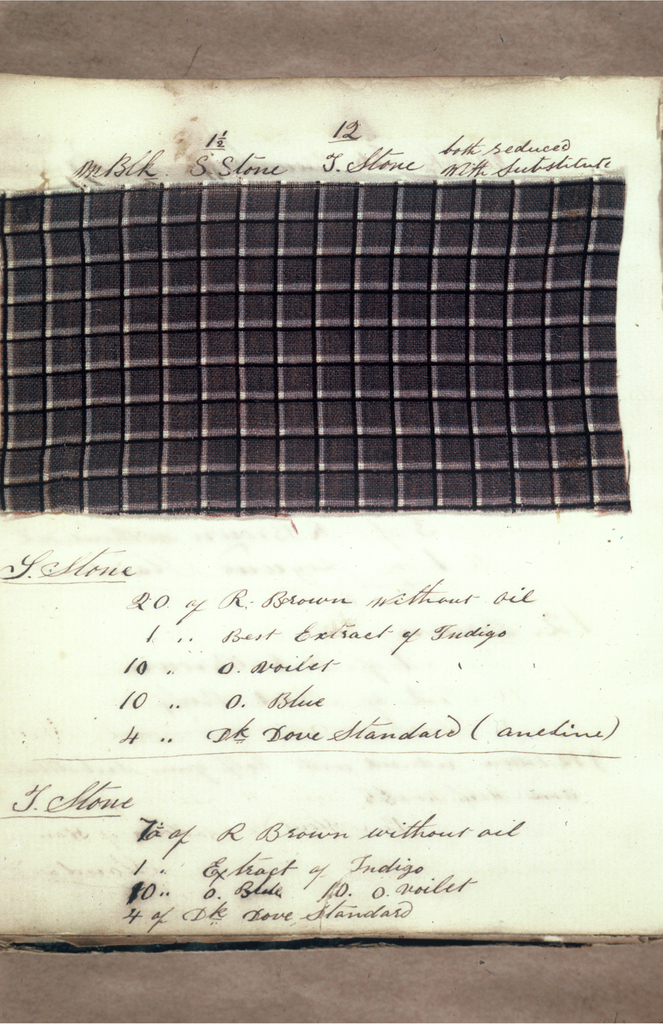 1½ 12
Blk. S. Stone J. Stone both reduced
with Substitute
S. Stone
20 of R. Brown without oil
1 " Best Extract of Indigo
10 " O. voilet
10 " O. Blue
4 " Dk Dove Standard (aneline)
J. Stone
7½ of R Brown without oil
1 " Extract of Indigo
10 " O. Blue 10. O. voilet
4 of Dk Dove Standard